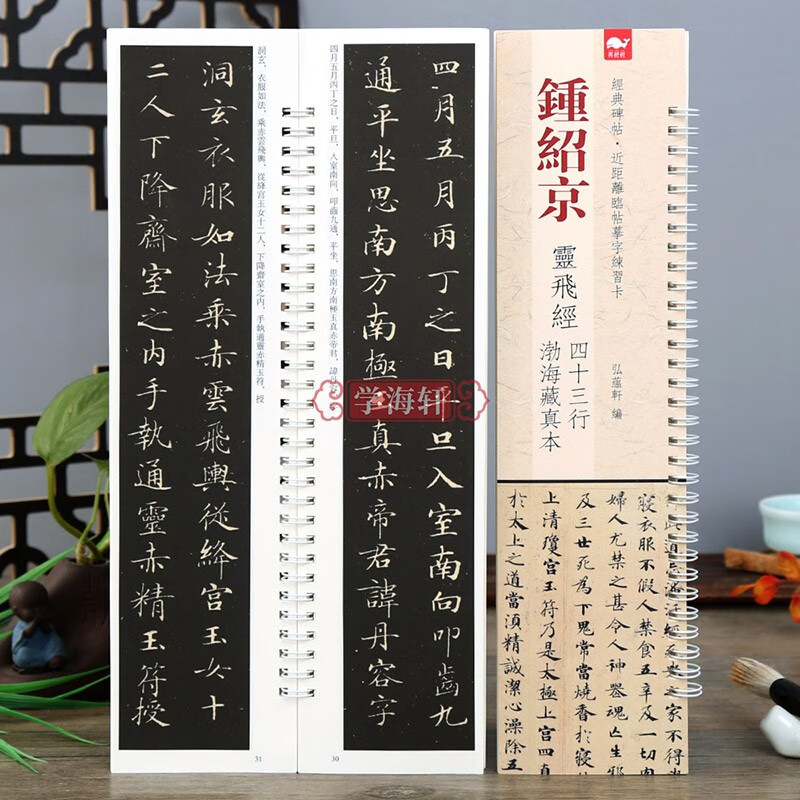 四月五月丙丁之日平旦入室南向叩齒九
通平坐思南方南極真赤帝君諱丹容字
四月五月丙丁之日，平旦，入室南向，叩齒九通，平坐，思南方南極玉真赤帝君，諱
30
洞玄衣服如法乘赤雲飛輿從絳宮玉女十
二人下降齋室之內手執通靈赤精玉符授
洞玄，衣服如法，乘赤雲飛輿，從絳宮玉女十二人，下降齋室之內，手執通靈赤精玉符，授
31
學海軒
經典碑帖·近距離臨帖摹字練習卡
鍾紹京
靈飛經
四十三行
渤海藏真本
弘蘊軒 編
之家不得
寢衣服不假人禁食五辛及一切
婦人尤禁之甚令人神器魂亡生邪
及三世死為下鬼常當燒香於寢
上清瓊宮玉符乃是太極上宮四真
於太上之道當須精誠潔心澡除五